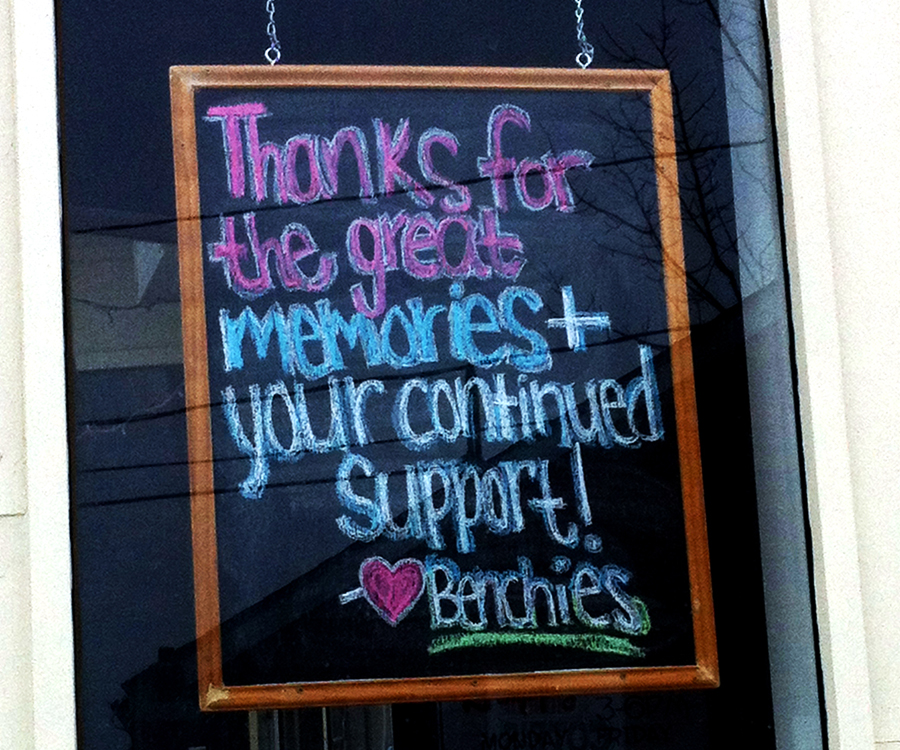 Thanks for
the great
memories +
your continued
support!
-♥Benchies